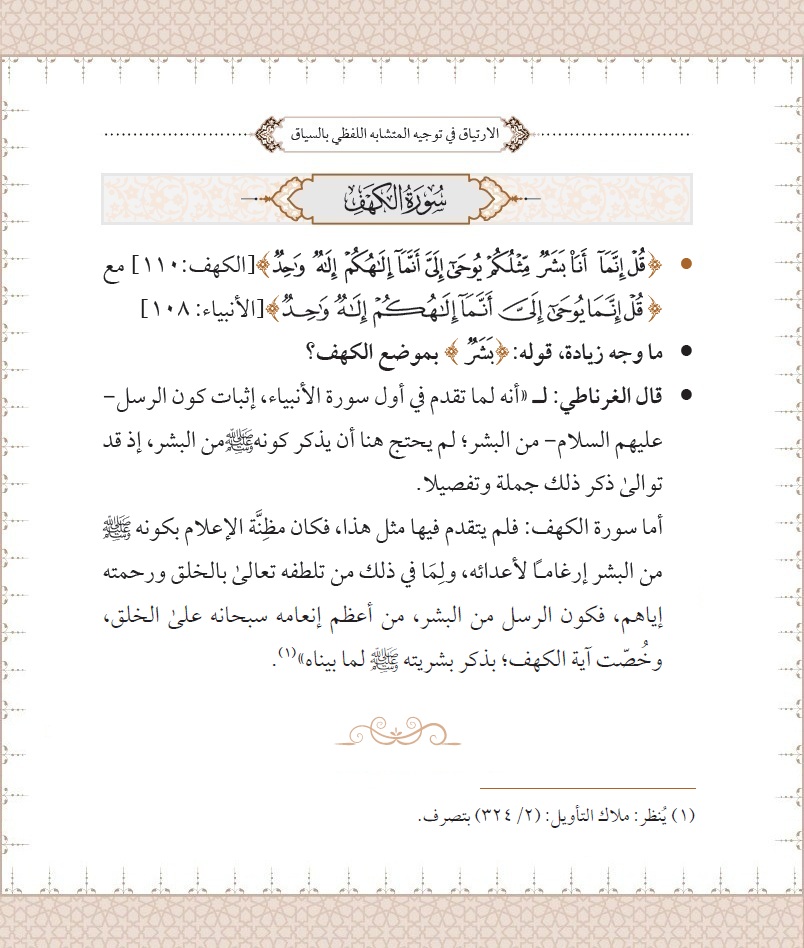 الارتياق في توجيه المتشابه اللفظي بالسياق
سُورَةُ الكَهْفِ
• ﴿قُلْ إِنَّمَآ أَنَا۠ بَشَرٌ مِّثْلُكُمْ يُوحَىٰٓ إِلَىَّ أَنَّمَآ إِلَٰهُكُمْ إِلَٰهٌ وَٰحِدٌ﴾[الكهف:١١٠] مع
﴿قُلْ إِنَّمَا يُوحَىٰٓ إِلَىَّ أَنَّمَآ إِلَٰهُكُمْ إِلَٰهٌ وَٰحِدٌ﴾[الأنبياء: ١٠٨]
• ما وجه زيادة، قوله: ﴿بَشَرٌ﴾ بموضع الكهف؟
• قال الغرناطي: لـ «أنه لما تقدم في أول سورة الأنبياء، إثبات كون الرسل-
عليهم السلام- من البشر؛ لم يحتج هنا أن يذكر كونه ﷺ من البشر، إذ قد
توالىٰ ذكر ذلك جملة وتفصيلا.
أما سورة الكهف: فلم يتقدم فيها مثل هذا، فكان مظِنَّة الإعلام بكونه ﷺ
من البشر إرغامـًا لأعدائه، ولِمَا في ذلك من تلطفه تعالىٰ بالخلق ورحمته
إياهم، فكون الرسل من البشر، من أعظم إنعامه سبحانه علىٰ الخلق،
وخُصّت آية الكهف؛ بذكر بشريته ﷺ لما بيناه»(١).
(١) يُنظر: ملاك التأويل: (٢/ ٣٢٤) بتصرف.